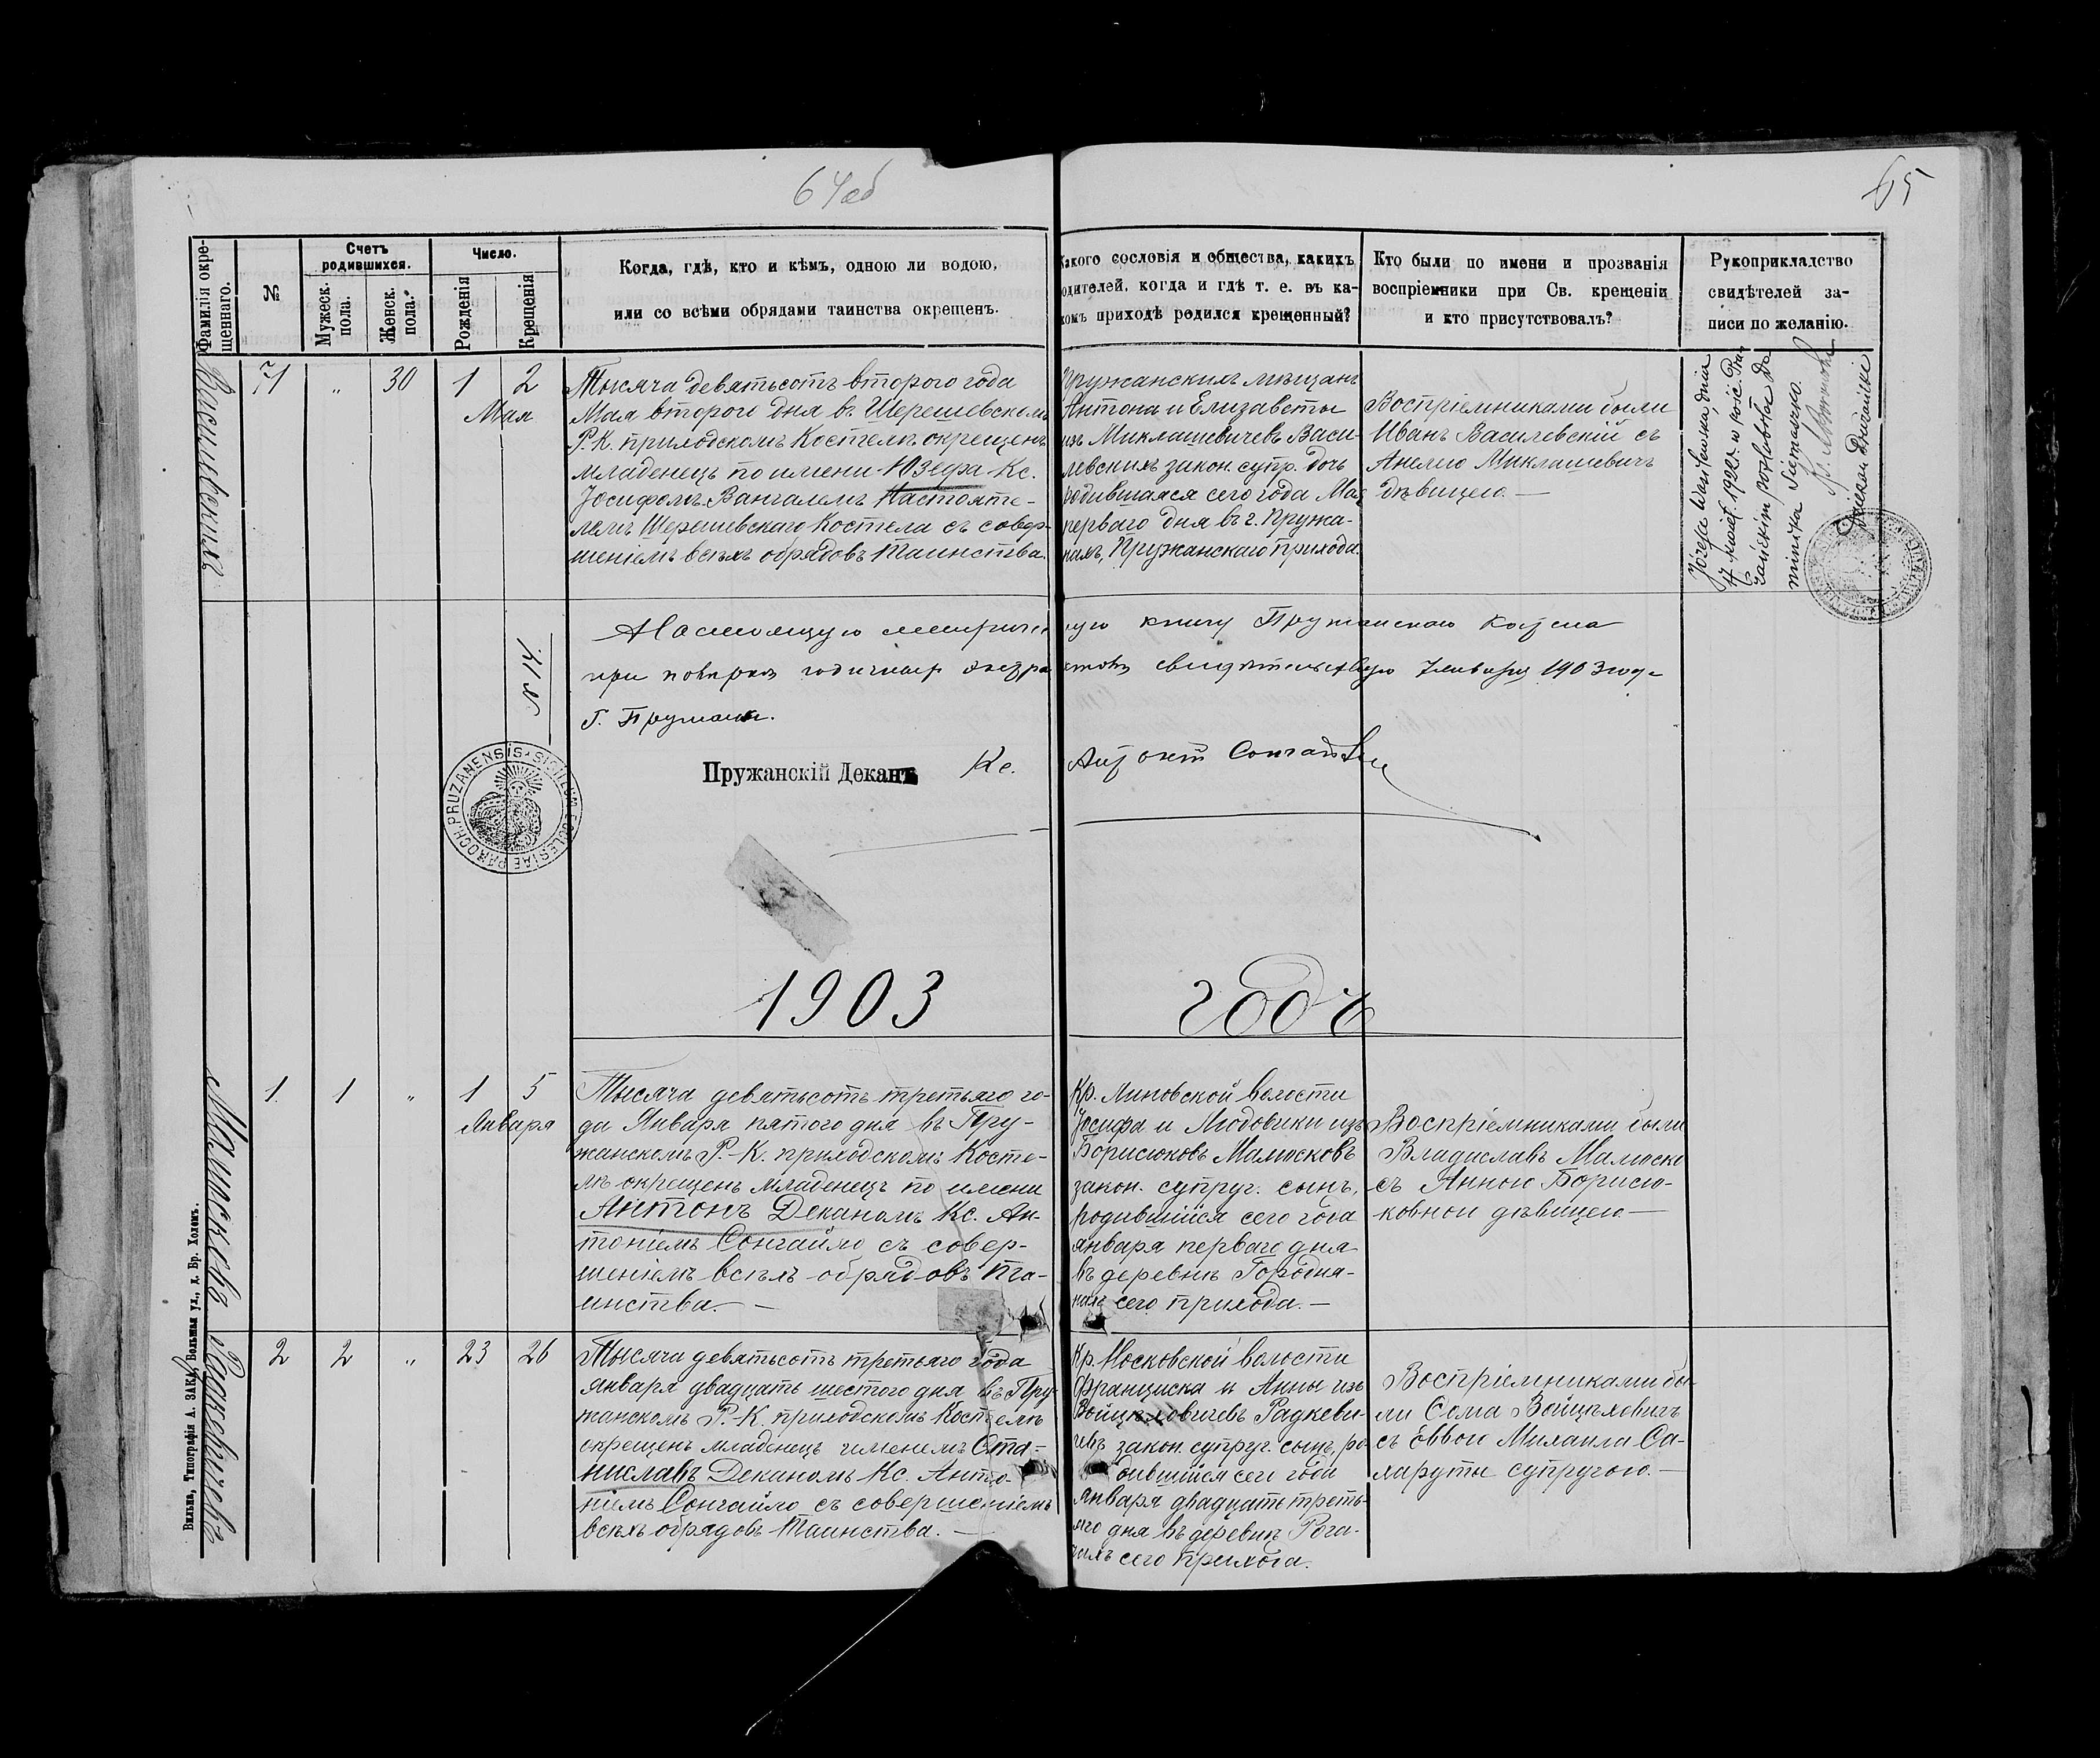 64об
65
Фамилія окре-
щеннаго.
№
Счетъ
родившихся.
Мужеск.
пола.
Женск.
пола.
Число.
Рожденія
Крещенія
Когда, гдѣ, кто и кѣмъ, одною ли водою,
или со всѣми обрядами таинства окрещенъ.
Какого сословія и общества, какихъ
родителей, когда и гдѣ т. е. въ ка-
комъ приходѣ родился крещенный?
Кто были по имени и прозванія
воспріемники при Св. крещеніи
и кто присутствовалъ?
Рукоприкладство
свидѣтелей за-
писи по желанію.
Василевскихъ
71 " 30 1 2
Мая
Тысяча девятьсотъ второго года
Мая второго дня въ Шерешевскомъ
Р. К. приходскомъ Костелѣ окрещенъ
младенецъ по имени Юзефа Кс.
Іосифомъ Вангалемъ Настояте-
лемъ Шерешевскаго Костела съ совер-
шеніемъ всѣхъ обрядовъ Таинства.
Пружанскихъ мѣщанъ
Антона и Елизаветы
изъ Миклашевичевъ Васи-
левскихъ закон. супр. дочь
родившаяся сего года Мая
перваго дня въ г. Пружа-
нахъ, Пружанскаго прихода.
Воспріемниками были
Иванъ Василевскій съ
Анелею Миклашевичъ
дѣвицею. —
Józefa
1922 r. w kość.
Dziekan
№ 14.
Настоящую метрическую книгу Пружанскаго Костела
при повѣркѣ годичныхъ экстрактовъ свидѣтельствую Января 1903 года
г. Пружаны.
Пружанскій Деканъ Кс. Антоній Сонгайло
SIGILLUM ECCLESIAE PAROCH. PRUZANENSIS
1903 годъ
Малисковъ
1 1 " 1 5
Января
Тысяча девятьсотъ третьяго го-
да Января пятого дня въ Пру-
жанскомъ Р.-К. приходскомъ Косте-
лѣ окрещенъ младенецъ по имени
Антонъ Деканомъ Кс. Ан-
тоніемъ Сонгайло съ совер-
шеніемъ всѣхъ обрядовъ Та-
инства. —
Кр. Линовской волости
Іосифа и Людовики изъ
Борисюковъ Малисковъ
закон. супруг. сынъ,
родившійся сего года
января перваго дня
въ деревнѣ Городня-
нахъ сего прихода. —
Воспріемниками были
Владиславъ Малиско
съ Анною Борисю-
ковною дѣвицею. —
Радкевичевъ
2 2 " 23 26
Тысяча девятьсотъ третьяго года
января двадцать шестого дня въ Пру-
жанскомъ Р.-К. приходскомъ Костелѣ
окрещенъ младенецъ именемъ Ста-
ниславъ Деканомъ Кс. Анто-
ніемъ Сонгайло съ совершеніемъ
всѣхъ обрядовъ Таинства. —
Кр. Носковской волости
Франциска и Анны изъ
Войцѣховичевъ Радкеви-
чевъ закон. супруг. сынъ, ро-
дившійся сего года
января двадцать треть-
яго дня въ деревнѣ Рога-
чахъ сего прихода.
Воспріемниками бы-
ли Сома Войцѣховичъ
съ Еввою Михаила Са-
харуты супругою. —
Вильна, Типографія А. ЗАКА, Вольная ул., д. Бр. Холемъ.